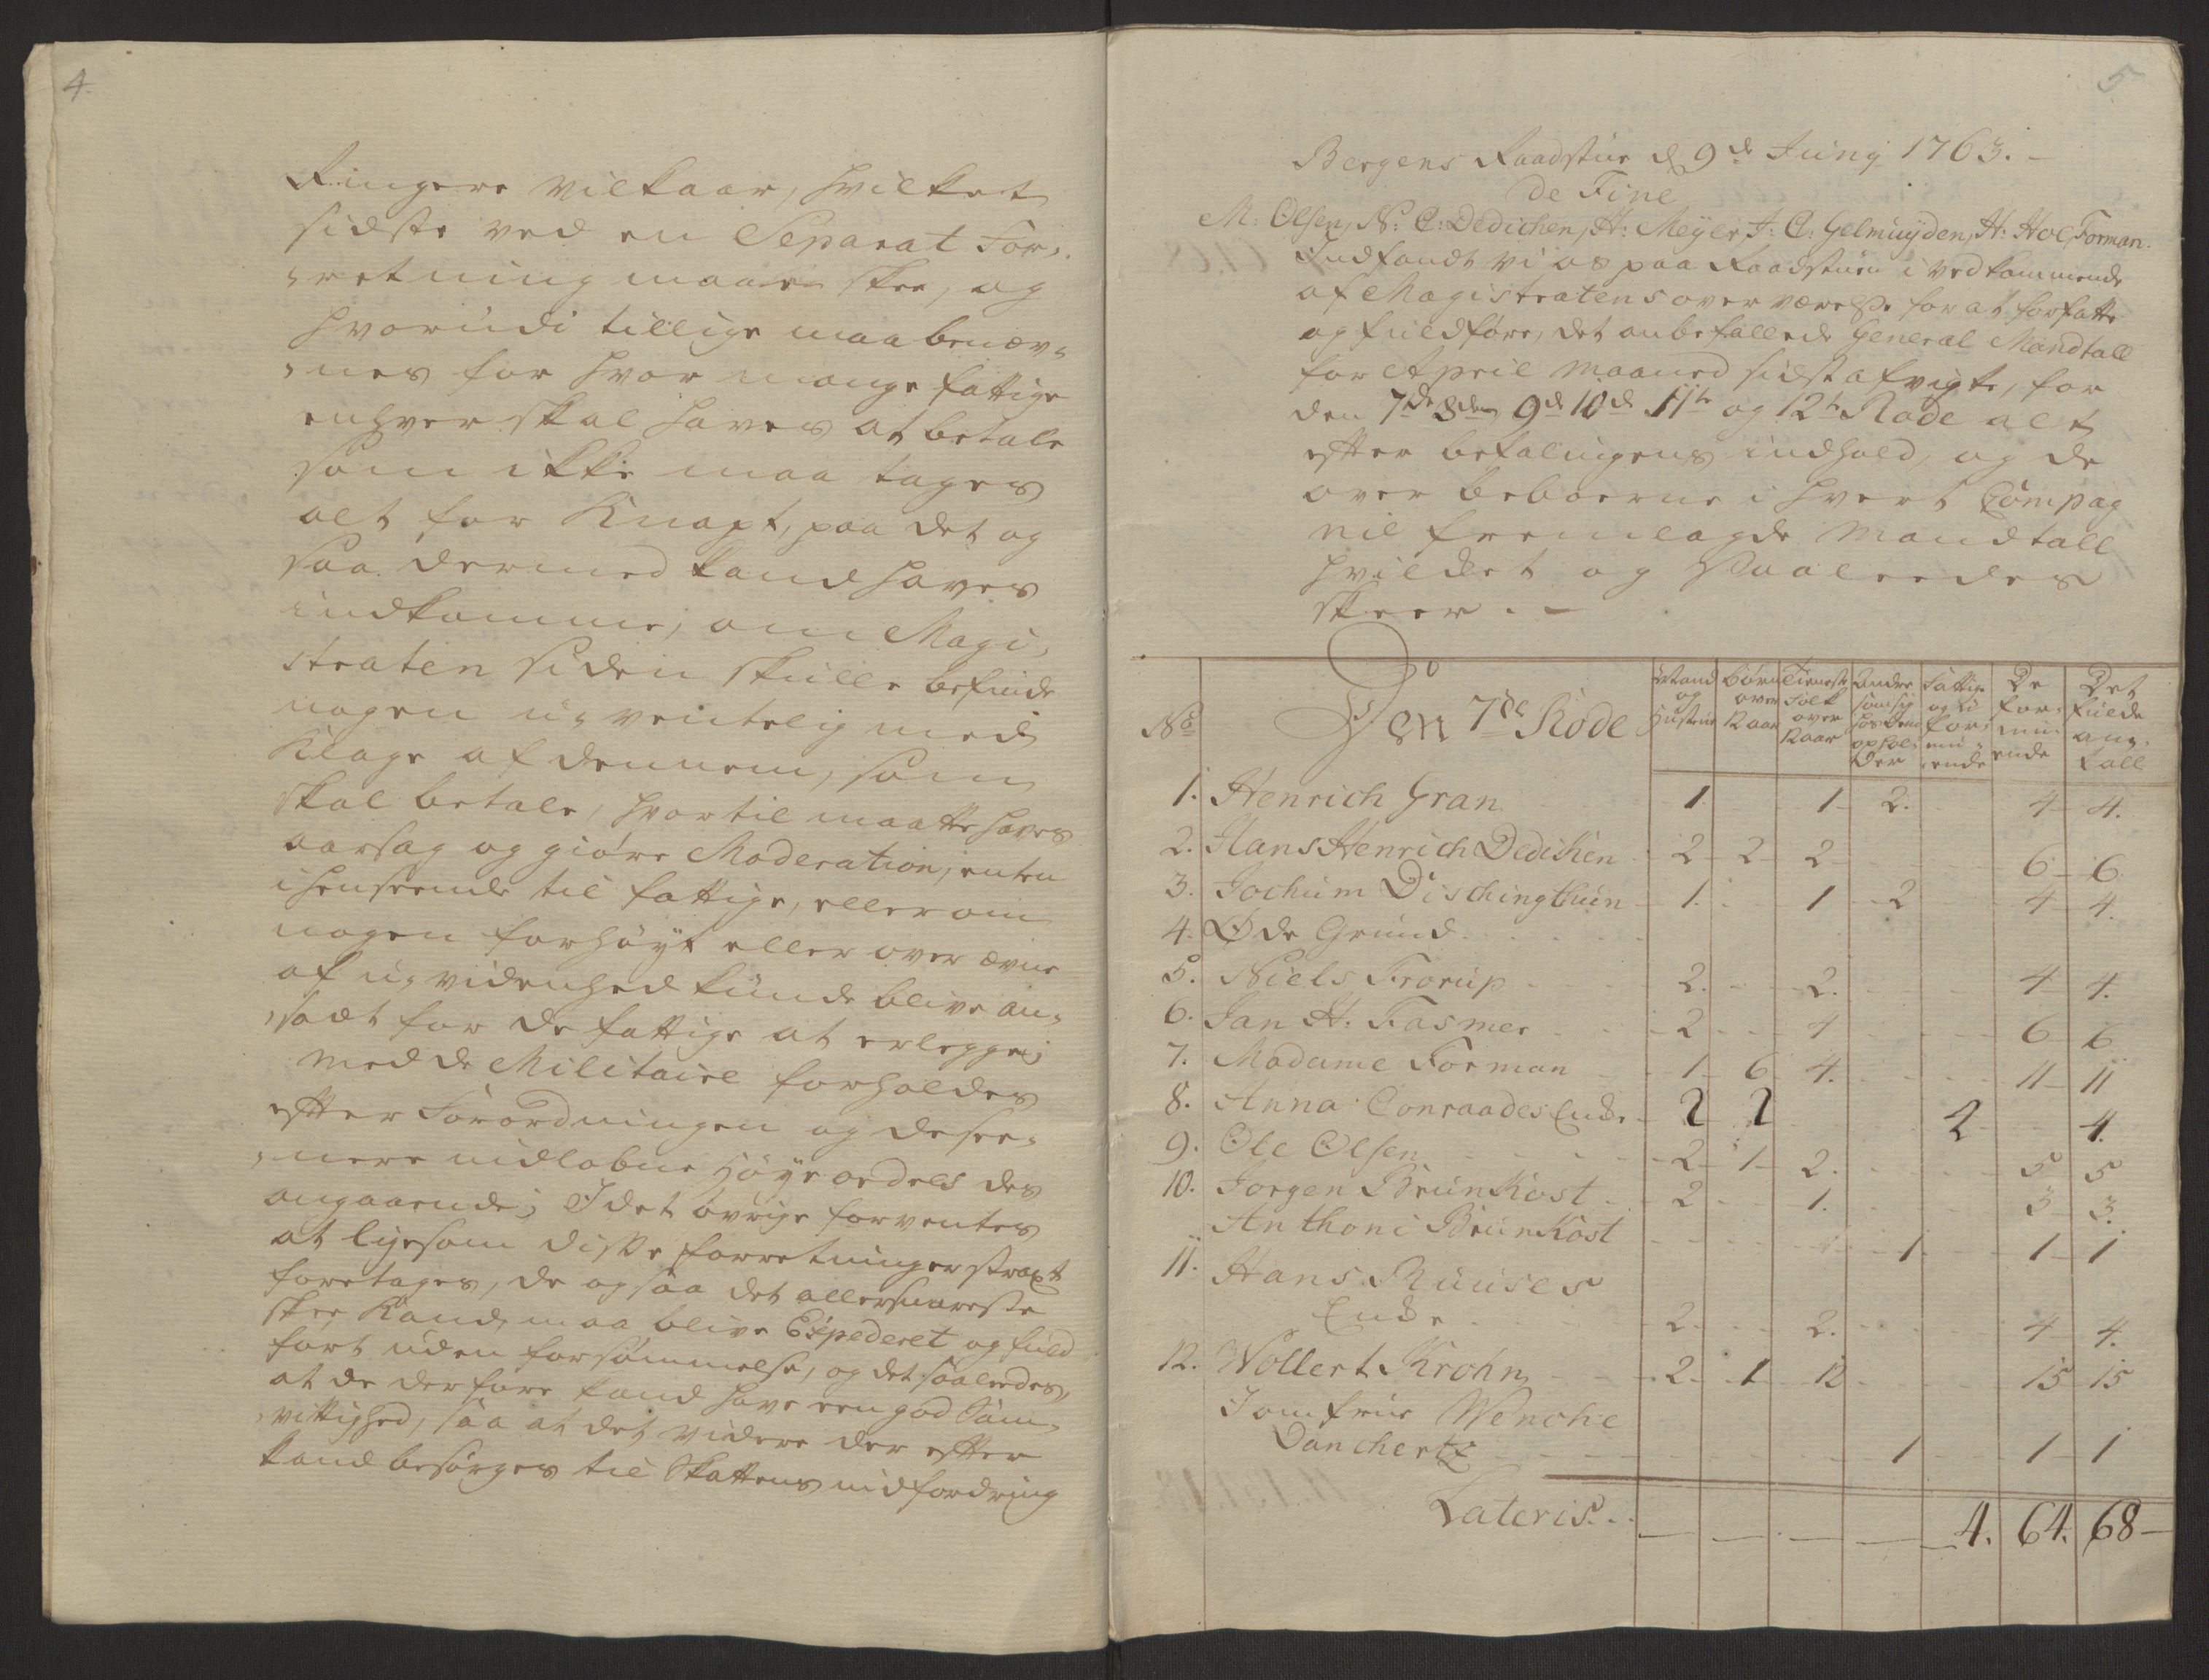 4.
Ringere vilkaar, hvilket
sidste ved en Separat For,,
,,retning maae skee, og
hvorudi tillige maa benæv,,
,,nes for hvor mange fattige
enhver skal haves at betale
som ikke maa tages
alt for Knapt, paa det og
saa dermed kand haves
indkomme, om Magi,,
straten siden skulle befinde
nogen u,,ventelig med
Klage af dennem, som
skal betale, hvortil maatte haves
aarsag og giøre Moderation, enten
i henseende til fattige, eller om
nogen forhøyt eller over ævne
af u,,videnhed kunde blive an,,
,,sadt for de fattige at erlegge;
Med de Militaire forholdes
efter Forordningen og de see,,
,,nere udlobne høye ordres des
angaaende; I det øvrige forventes
at ligesom disse forretninger strax
foretages, de og saa det allersnareste
skee Kand, maa blive Expederet og fuld
ført uden forsømmelse, og det saaledes,
at de derfore kand have een god Sam,,
,,vittighed, saa at det videre der efter
kand besørges til Skattens udfordring
5
Bergens Raadstue d 9de Junij 1763. -
de Fine
M: Olsen, N: C: Dedichen, H: Meyer, J: C: Gelmuyden, H: Hoe, Forman.
Indfandt vi os paa Raadstuen i vedkommende
af Magistratens overværelse for at forfatte
og fuldføre, det anbefallede General Mandtall
for April Maaned sidst afvigte, for
den 7de 8de 9de 10de 11te og 12te Rode alt
efter befalingens indhold, og de
over beboerne i hvert Compag
nie fremlagde Mandtall
hvilket og saaledes
skeer. -
No Den 7de Rode | Mand og Hustrue | Børn over Aar | Tieneste Folk over Aar | Andre som sig hos dem ophol- der | Fattige og u formu- ende | De for- mu- ende | Det fulde an- tall
1. Henrich Gran 1. 1 2. 4 4.
2. Hans Henrich Dedichen 2 2 2 6 6.
3. Jochum Dischingthun 1. 1 2 4 4.
4. Øde Grund
5. Niels Frorup 2. 2. 4 4.
6. Jan H: Fasmer 2 4 6 6
7. Madame Forman 1 6 4. 11 11
8. Anna Conraades Enke 2 2 4 4.
9. Ole Olsen 2 1 2. 5 5
10. Jorgen Brunkost 2 1. 3 3.
Anthoni Brunkost 1 1 1
11. Hans Ruuses
Enke 2. 2. 4 4.
12. Wollert Krohn 2. 1 12 15 15
Jomfrue Wenche
Danchertz 1 1 1
Lateris. 4. 64. 68